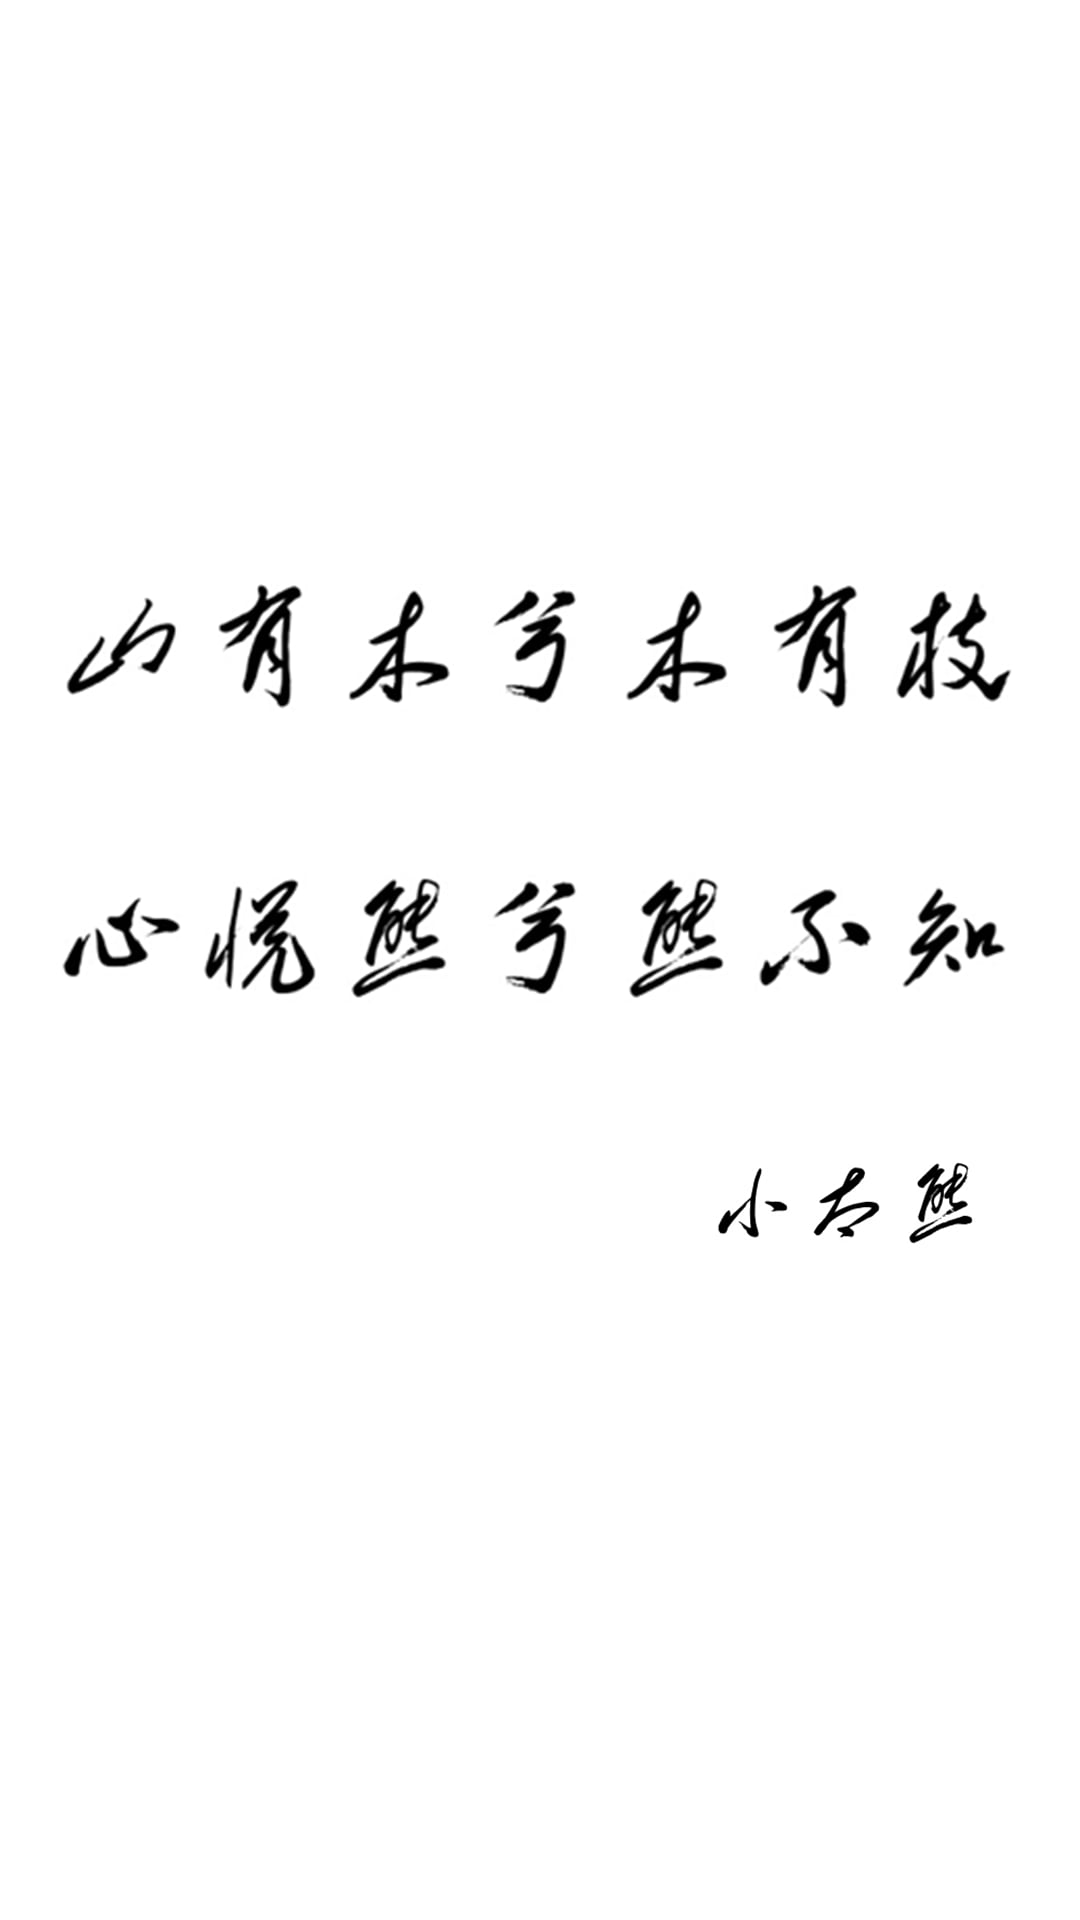 山有木兮木有枝
心悦熊兮熊不知
小太熊